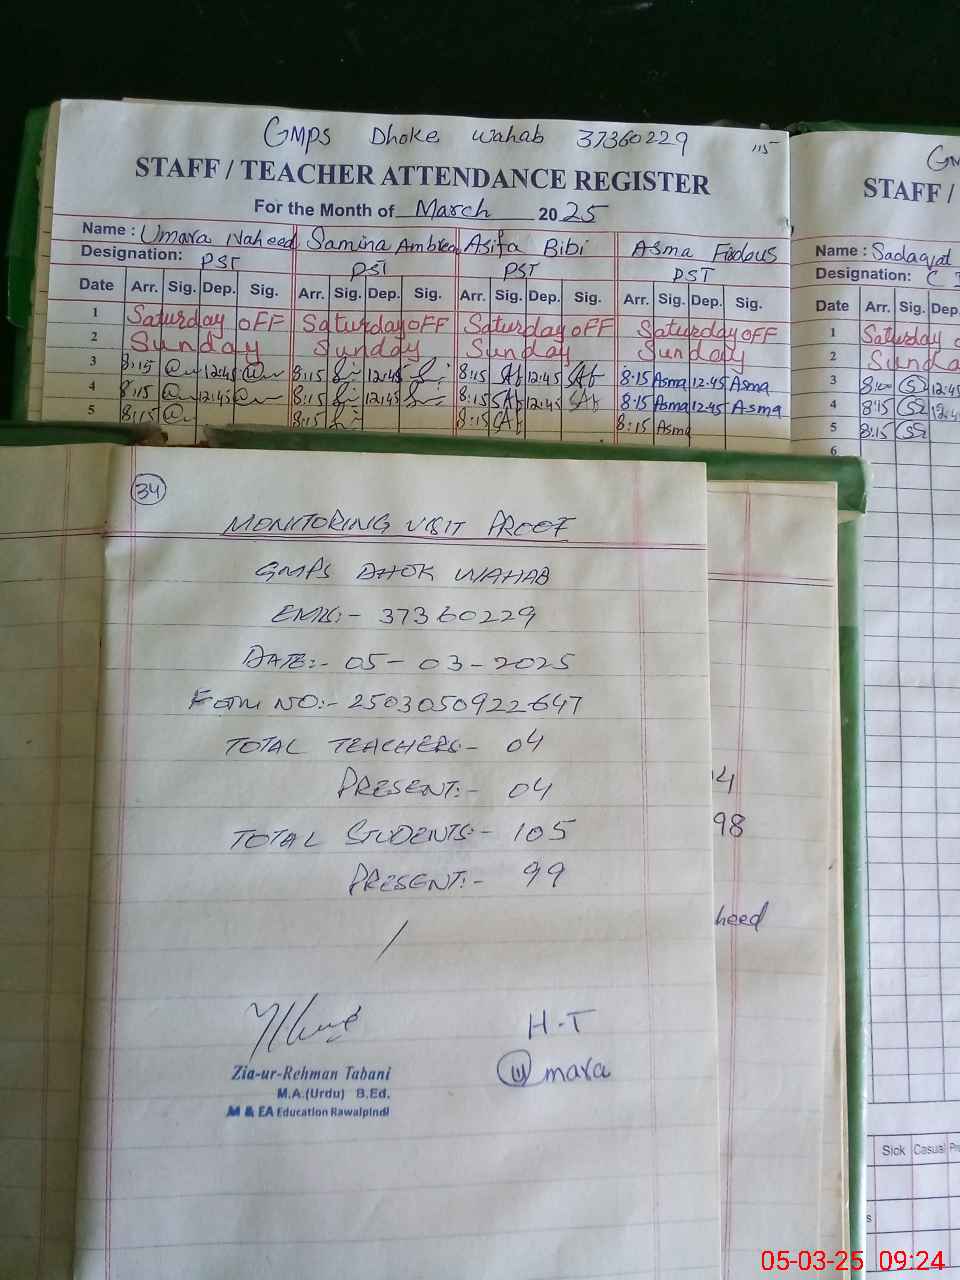 GMPS Dhoke Wahab 37360229
115
STAFF / TEACHER ATTENDANCE REGISTER
For the Month of March 2025
Name : Umara Naheed Samina Ambreen Asifa Bibi Asma Firdous
Designation: PST PST PST PST
Date Arr. Sig. Dep. Sig. Arr. Sig. Dep. Sig. Arr. Sig. Dep. Sig. Arr. Sig. Dep. Sig.
1 Saturday OFF Saturday OFF Saturday OFF Saturday OFF
2 Sunday Sunday Sunday Sunday
3 8:15 12:45 8:15 12:45 8:15 12:45 8:15 Asma 12:45 Asma
4 8:15 12:45 8:15 12:45 8:15 12:45 8:15 Asma 12:45 Asma
5 8:15 8:15 8:15 8:15 Asma
GM
STAFF /
Name : Sadaqat
Designation: C
Date Arr. Sig. Dep.
1 Saturday
2 Sunda
3 12:45
4 8:15 12:45
5 8:15
6
34
MONITORING VISIT PROOF
GMPS DHOK WAHAB
EMIS:- 37360229
DATE:- 05-03-2025
Form NO:- 2503050922647
TOTAL TEACHERS:- 04
PRESENT:- 04
TOTAL STUDENTS:- 105
PRESENT:- 99
/
Zia-ur-Rehman Tabani
M.A.(Urdu) B.Ed.
M & EA Education Rawalpindi
H.T
Umara
4
98
heed
Sick Casual
05-03-25 09:24